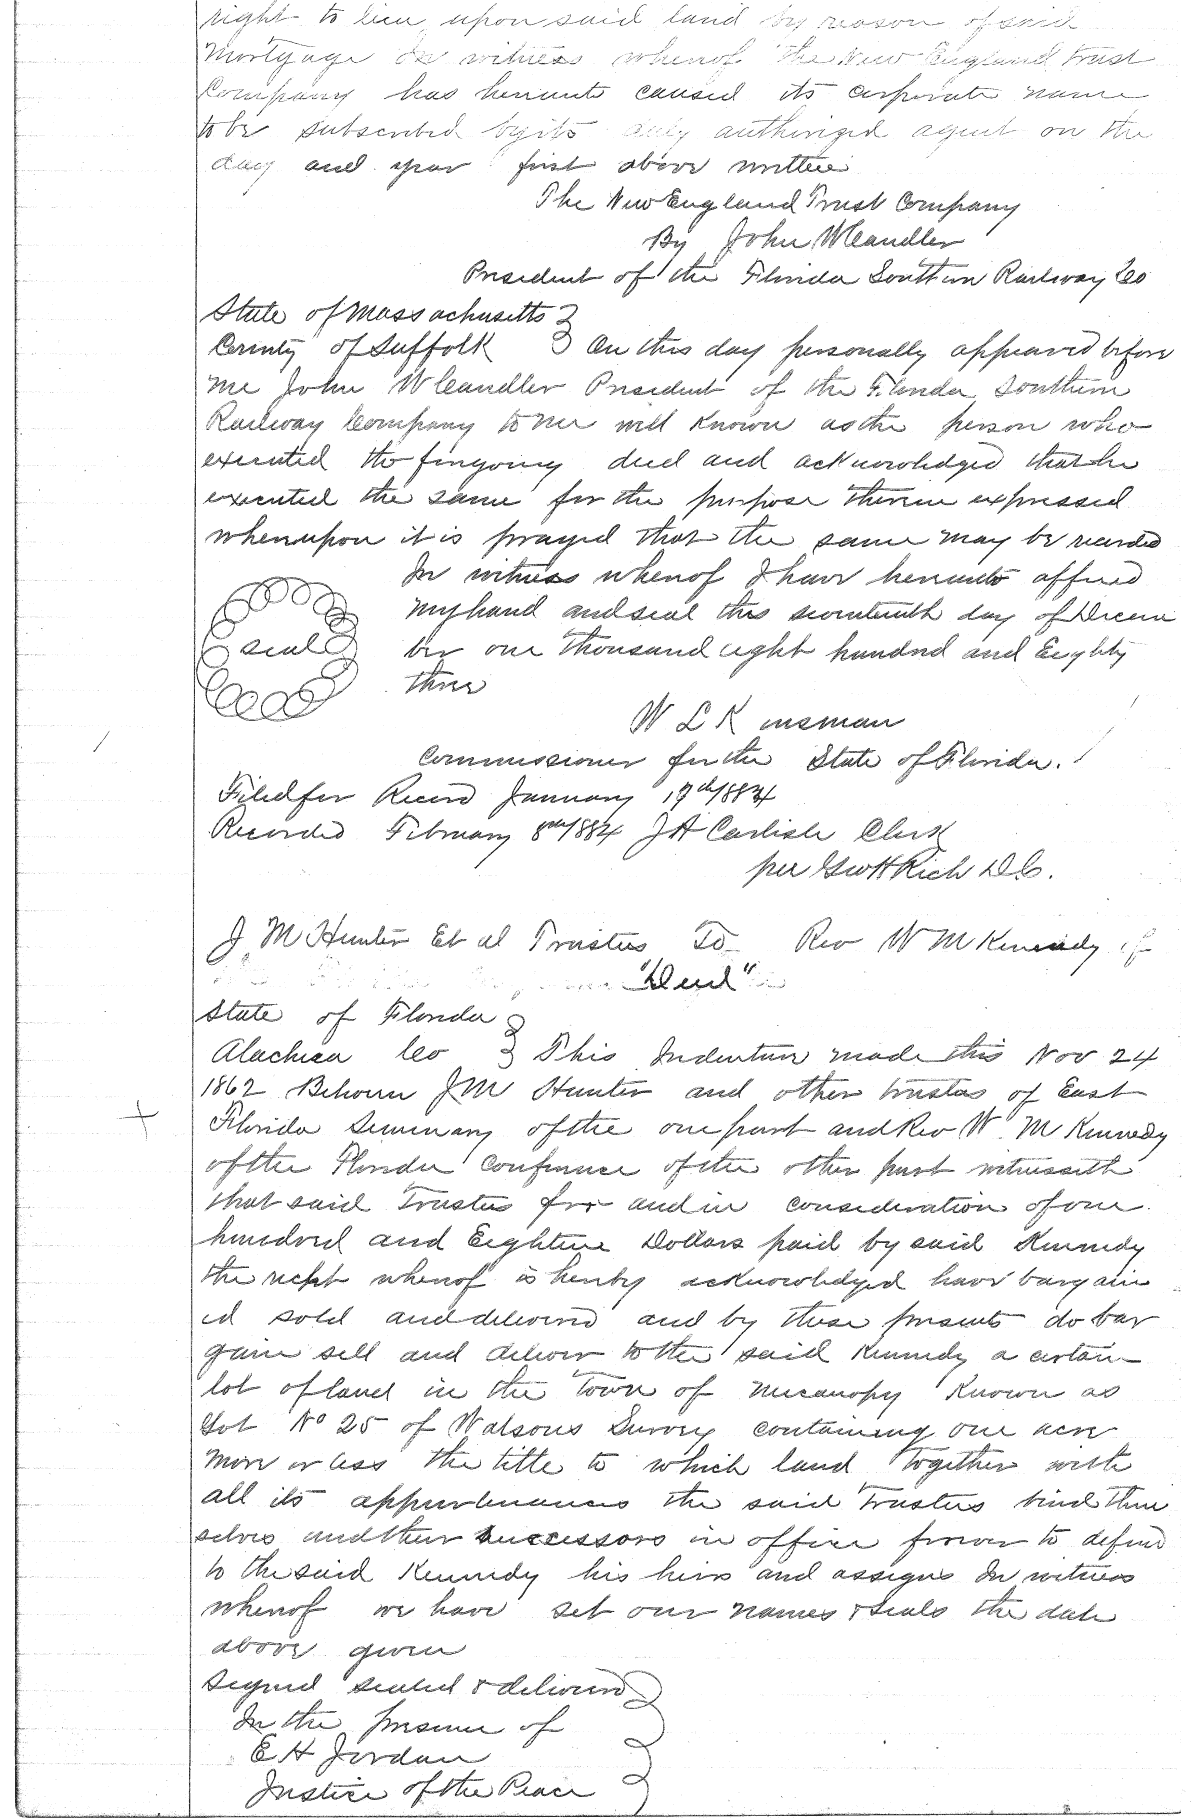 right to lien upon said land by reason of said
Mortgage In witness whereof the New England Trust
Company has hereunto caused its corporate name
to be subscribed by its duly authorized agent on the
day and year first above written
The New England Trust Company
By John W Candler
President of the Florida Southern Railway Co
State of Massachusetts
County of Suffolk On this day personally appeared before
me John W Candler President of the Florida Southern
Railway Company to me well known as the person who
executed the foregoing deed and acknowledged that he
executed the same for the purpose therein expressed
whereupon it is prayed that the same may be recorded
In witness whereof I have hereunto affixed
my hand and seal this seventeenth day of Decem
seal
ber one thousand eight hundred and Eighty
three
W L Kinsman
Commissioner for the State of Florida.
Filed for Record January 17th 1884
Recorded February 8th 1884 J A Carlisle Clerk
per Geo H Rich D C.
J M Hunter Et al Trustees To Rev W M Kennedy of
"Deed"
State of Florida
Alachua Co This Indenture made this Nov 24
1862 Between J M Hunter and other trustees of East
Florida Seminary of the one part and Rev W. M Kennedy
of the Florida Conference of the other part witnesseth
that said Trustees for and in consideration of one
hundred and Eighteen Dollars paid by said Kennedy
the recpt whereof is hereby acknowledged have bargain
ed sold and delivered and by these presents do bar
gain sell and deliver to the said Kennedy a certain
lot of land in the Town of Micanopy Known as
Lot No 25 of Watsons Survey containing one acre
more or less the title to which land together with
all its appurtenances the said Trustees bind them
selves and their successors in office forever to defend
to the said Kennedy his heirs and assigns In witness
whereof we have set our names & seals the date
above given
Signed sealed & delivered
In the presence of
E H Jordan
Justice of the Peace